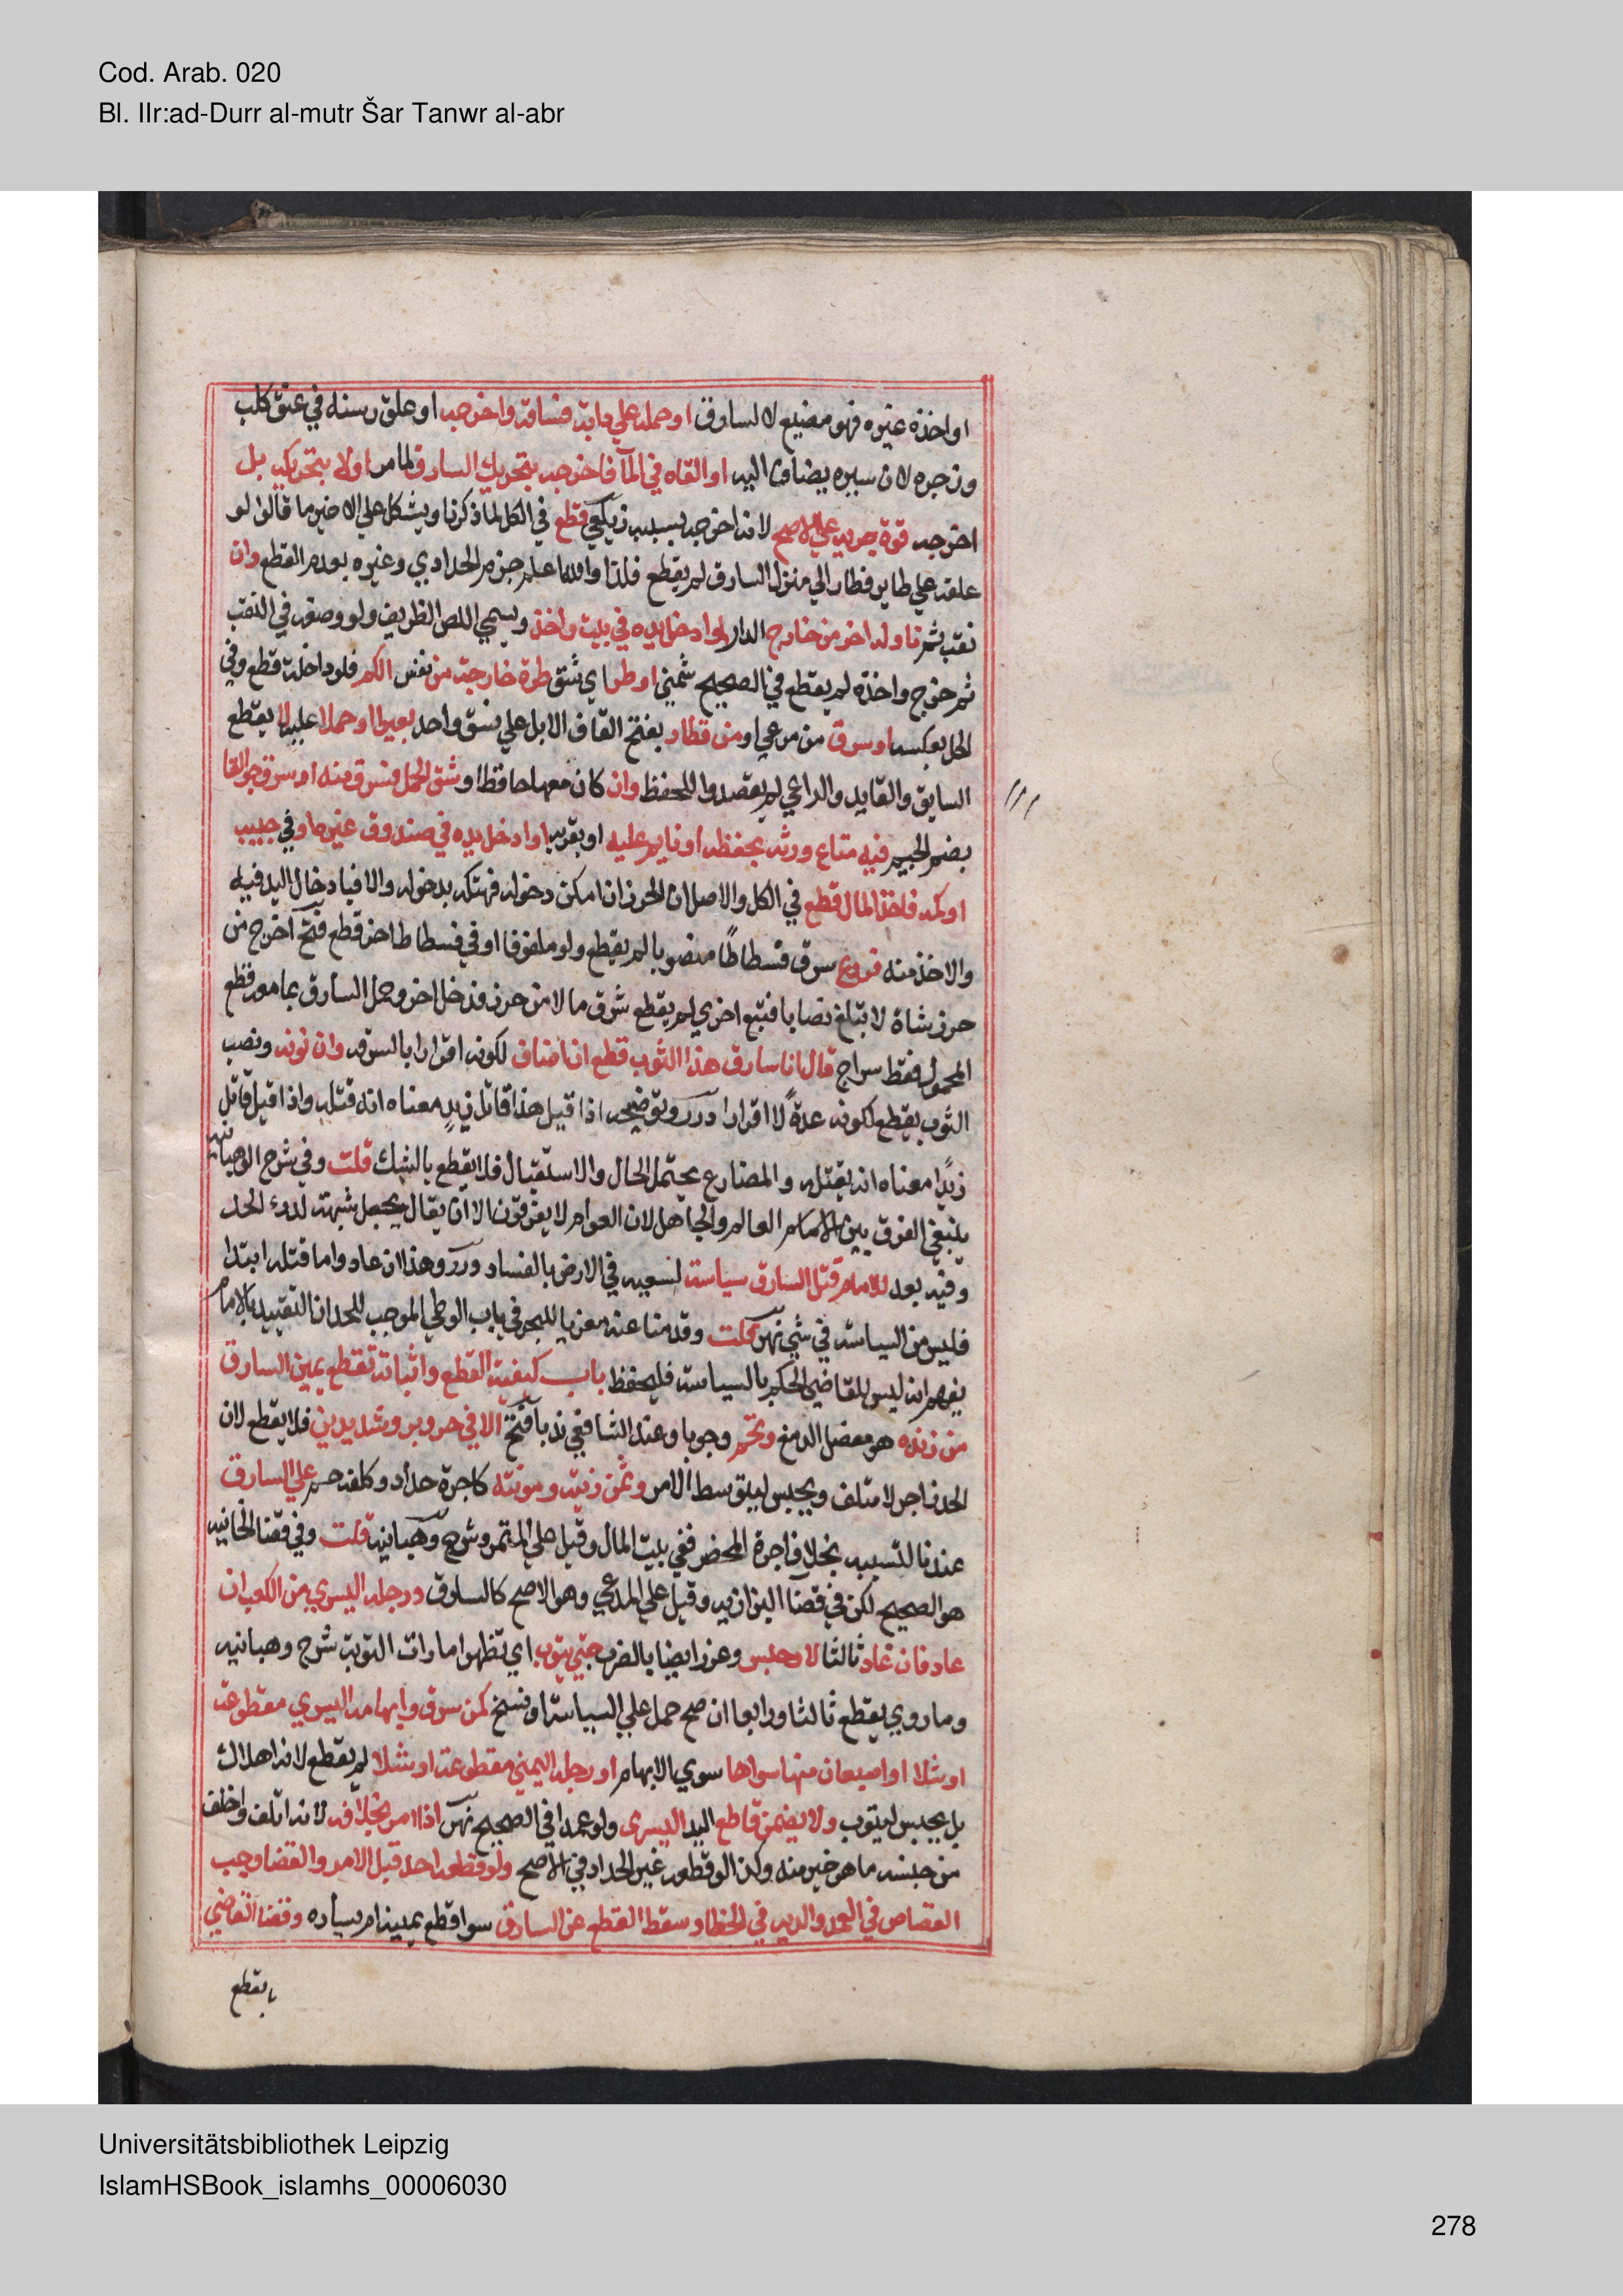 Cod. Arab. 020
Bl. IIr:ad-Durr al-mutr Šar Tanwr al-abr
او اخذه غيره فهو مضيع لا لسارق او حمله على دابة فساقه واخرجه او علق رسنه في عنق كلب
وزجره لان سيره يضاف اليه او القاه في المآ فاخرجه بتحريك السارق لما مر اولا بتحريكه بل
اخرجه قوة جريه على الاصح لانه اخرجه بسببه زيلعي قطع في الكل لما ذكرنا ويشكل على الاخير ما قالوا لو
علقه على طاير فطار الي منزل السارق لم يقطع فلذا والله اعلم جزم الحدادي وغيره بعدم القطع وان
نقب ثم ناوله اخر من خارج الدار او ادخل يده في بيت واخذ ويسمى اللص الظريف ولو وضعه في النقب
ثم خرج واخذه لم يقطع في الصحيح شمني او طر اي شق طرة خارجة من نفس الكم فلو داخلة قطع وفي
الحل بعكسه او سرق من مرعى او من قطار بفتح القاف الابل على نسق واحد بعيرا او حملا عليه لا يقطع
السايق والقايد والراعي لم يقصدوا للحفظ وان كان معها حافظ او شق الحمل فسرق منه او سرق جوالقا
بضم الجيم فيه متاع وربه يحفظه او نايم عليه او بقربه او ادخل يده في صندوق غيره او في جيبه
او كمه فاخذ المال قطع في الكل والاصل ان الحرز ان امكن دخوله فهتكه بدخوله والا فبادخال اليد فيه
والاخذ منه فروع سرق فسطاطًا منصوبا لم يقطع ولو ملفوفا او في فسطاط اخر قطع فتح اخرج من
حرز شاة لا تبلغ نصابا فتبع اخري لم يقطع سرق مالا من حرز فدخل اخر وحمل السارق بما معه قطع
المحمول فقط سراج قال انا سارق هذا الثوب قطع ان اضاف لكونه اقرارا بالسرقه وان نونه ونصب
الثوب يقطع لكونه عدةً لا اقرارا درر وتوضيحه اذا قيل هذا قاتل زيدٍ معناه انه قتله واذا قيل قاتل
زيدًا معناه انه يقتله والمضارع يحتمل الحال والاستقبال فلا يقطع بالشك قلت وفي شرح الوهبانيه
ينبغي الفرق بين الامام العالم والجاهل لان العوام لا يفرقون الا ان يقال يجعل شبهة لدرء الحد
وفيه بعد للامام قتل السارق سياسة لسعيه في الارض بالفساد درر وهذا ان عاد واما قتله ابتدا
فليس من السياسة في شي نهر قلت وقدمنا عنه معزيا للبحر في باب الوطي الموجب للحد ان التقييد بالامام
يفهم انه ليس للقاضي الحكم بالسياسة فليحفظ باب كيفية القطع واثباته تقطع يمين السارق
من زنده هو مفصل الرسغ وتحسم وجوبا وعند الشافعي ندبا فتح الا في حر وبرد شديدين فلا يقطع لان
الحد زاجر لا متلف ويحبس ليتوسط الامر وثمن زيته ومونته كاجرة حداد وكلفة حسم على السارق
عندنا لتسببه بخلاف اجرة المحضر ففي بيت المال وقيل على المتمرد شرح وهبانيه قلت وفي قضا الخانيه
هو الصحيح لكن في قضا البزازيه وقيل على المدعي وهو الاصح كالسارق ورجله اليسري من الكعب ان
عاد فان عاد ثالثا لا وحبس وعزر ايضا بالضرب حتى يتوب اي تظهر امارات التوبة شرح وهبانيه
وما روي يقطع ثالثا ورابعا ان صح حمل على السياسة او نسخ كمن سرق وابهامه اليسري مقطوعة
او شلا او اصبعان منها سواها سوي الابهام او رجله اليمنى مقطوعة او شلا لم يقطع لانه اهلاك
بل يحبس ليتوب ولا يضمن قاطع اليد اليسرى ولو عمدا في الصحيح نهر اذا امر بخلافه لانه اتلف واخلف
من جنسه ما هو خير منه وكذا لو قطعه غير الحداد في الاصح ولو قطعه احد قبل الامر والقضا وجب
القصاص في العمد والديه في الخطا وسقط القطع عن السارق سوا قطع يمينه ام يساره وقضا القاضي
بالقطع
Universitätsbibliothek Leipzig
IslamHSBook_islamhs_00006030
278